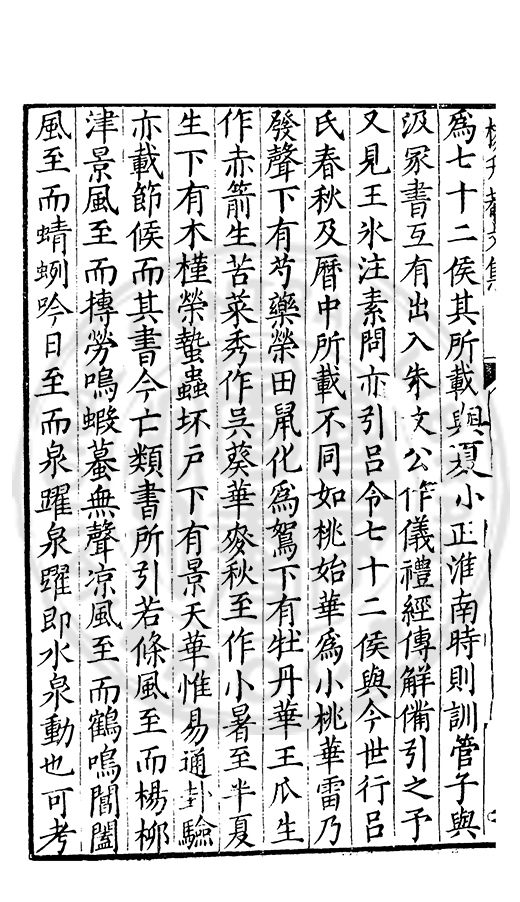 為七十二候其所載與夏小正淮南時則訓管子與
汲冢書互有出入朱文公作儀禮經傳解備引之予
又見王氷注素問亦引呂令七十二侯與今世行呂
氏春秋及曆中所載不同如桃始華為小桃華雷乃
發聲下有芍藥榮田鼠化為鴽下有牡丹華王瓜生
作赤箭生苦菜秀作吳葵華麥秋至作小暑至半夏
生下有木槿榮蟄蟲坏戶下有景天華惟易通卦驗
亦載節候而其書今亡類書所引若條風至而楊柳
津景風至而摶勞鳴蝦蟇無聲凉風至而鶴鳴閶闔
風至而蜻蛚吟日至而泉躍泉躍即水泉動也可考